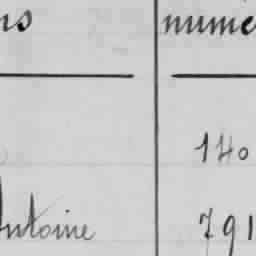 ns numé
140
Antoine 791